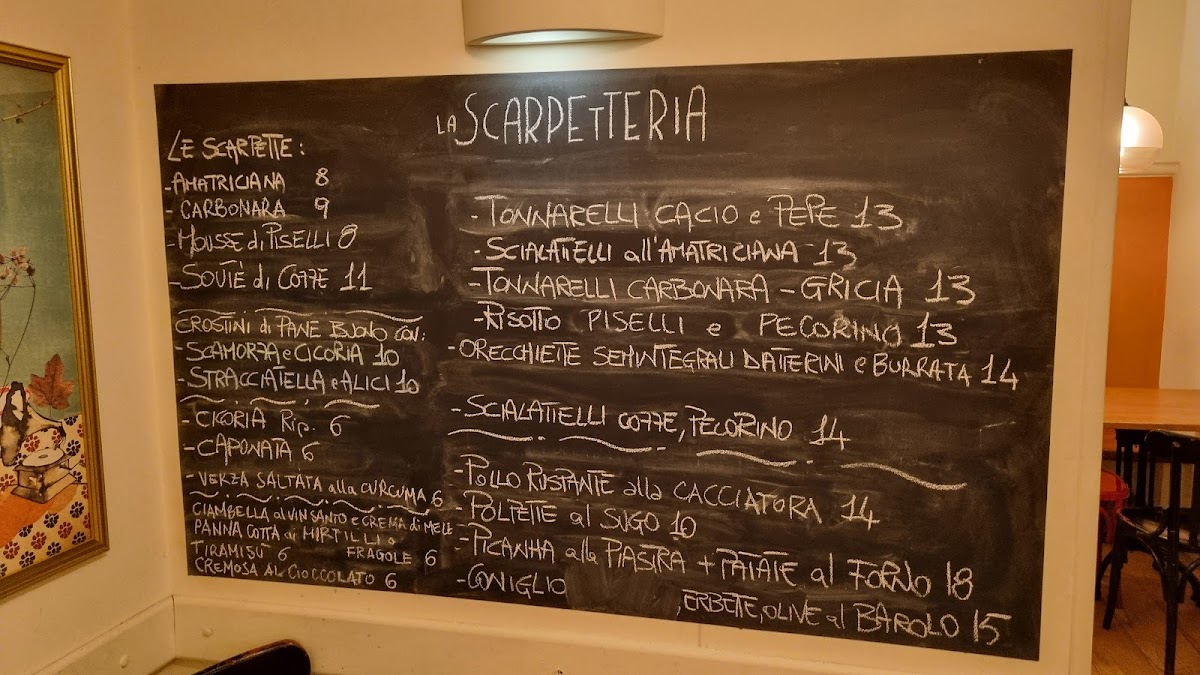 LA SCARPETTERIA
LE SCARPETTE:
-AMATRICIANA 8
-CARBONARA 9
-MOUSSE di PISELLI 8
-SOUTÈ di COZZE 11
CROSTINI di PANE BUONO CON:
-SCAMORZA e CICORIA 10
-STRACCIATELLA e ALICI 10
-CICORIA Rip. 6
-CAPONATA 6
-VERZA SALTATA alla CURCUMA 6
CIAMBELLA al VINSANTO e CREMA di MELE
PANNA COTTA ai MIRTILLI
TIRAMISÙ 6 FRAGOLE 6
CREMOSA AL CIOCCOLATO 6
-TONNARELLI CACIO e PEPE 13
-SCIALATIELLI all'AMATRICIANA 13
-TONNARELLI CARBONARA - GRICIA 13
-RISOTTO PISELLI e PECORINO 13
-ORECCHIETTE SEMINTEGRALI DATTERINI e BURRATA 14
-SCIALATIELLI COZZE, PECORINO 14
-POLLO RUSPANTE alla CACCIATORA 14
-POLPETTE al SUGO 10
-PICANHA alla PIASTRA + PATATE al FORNO 18
-CONIGLIO ,ERBETTE, OLIVE al BAROLO 15